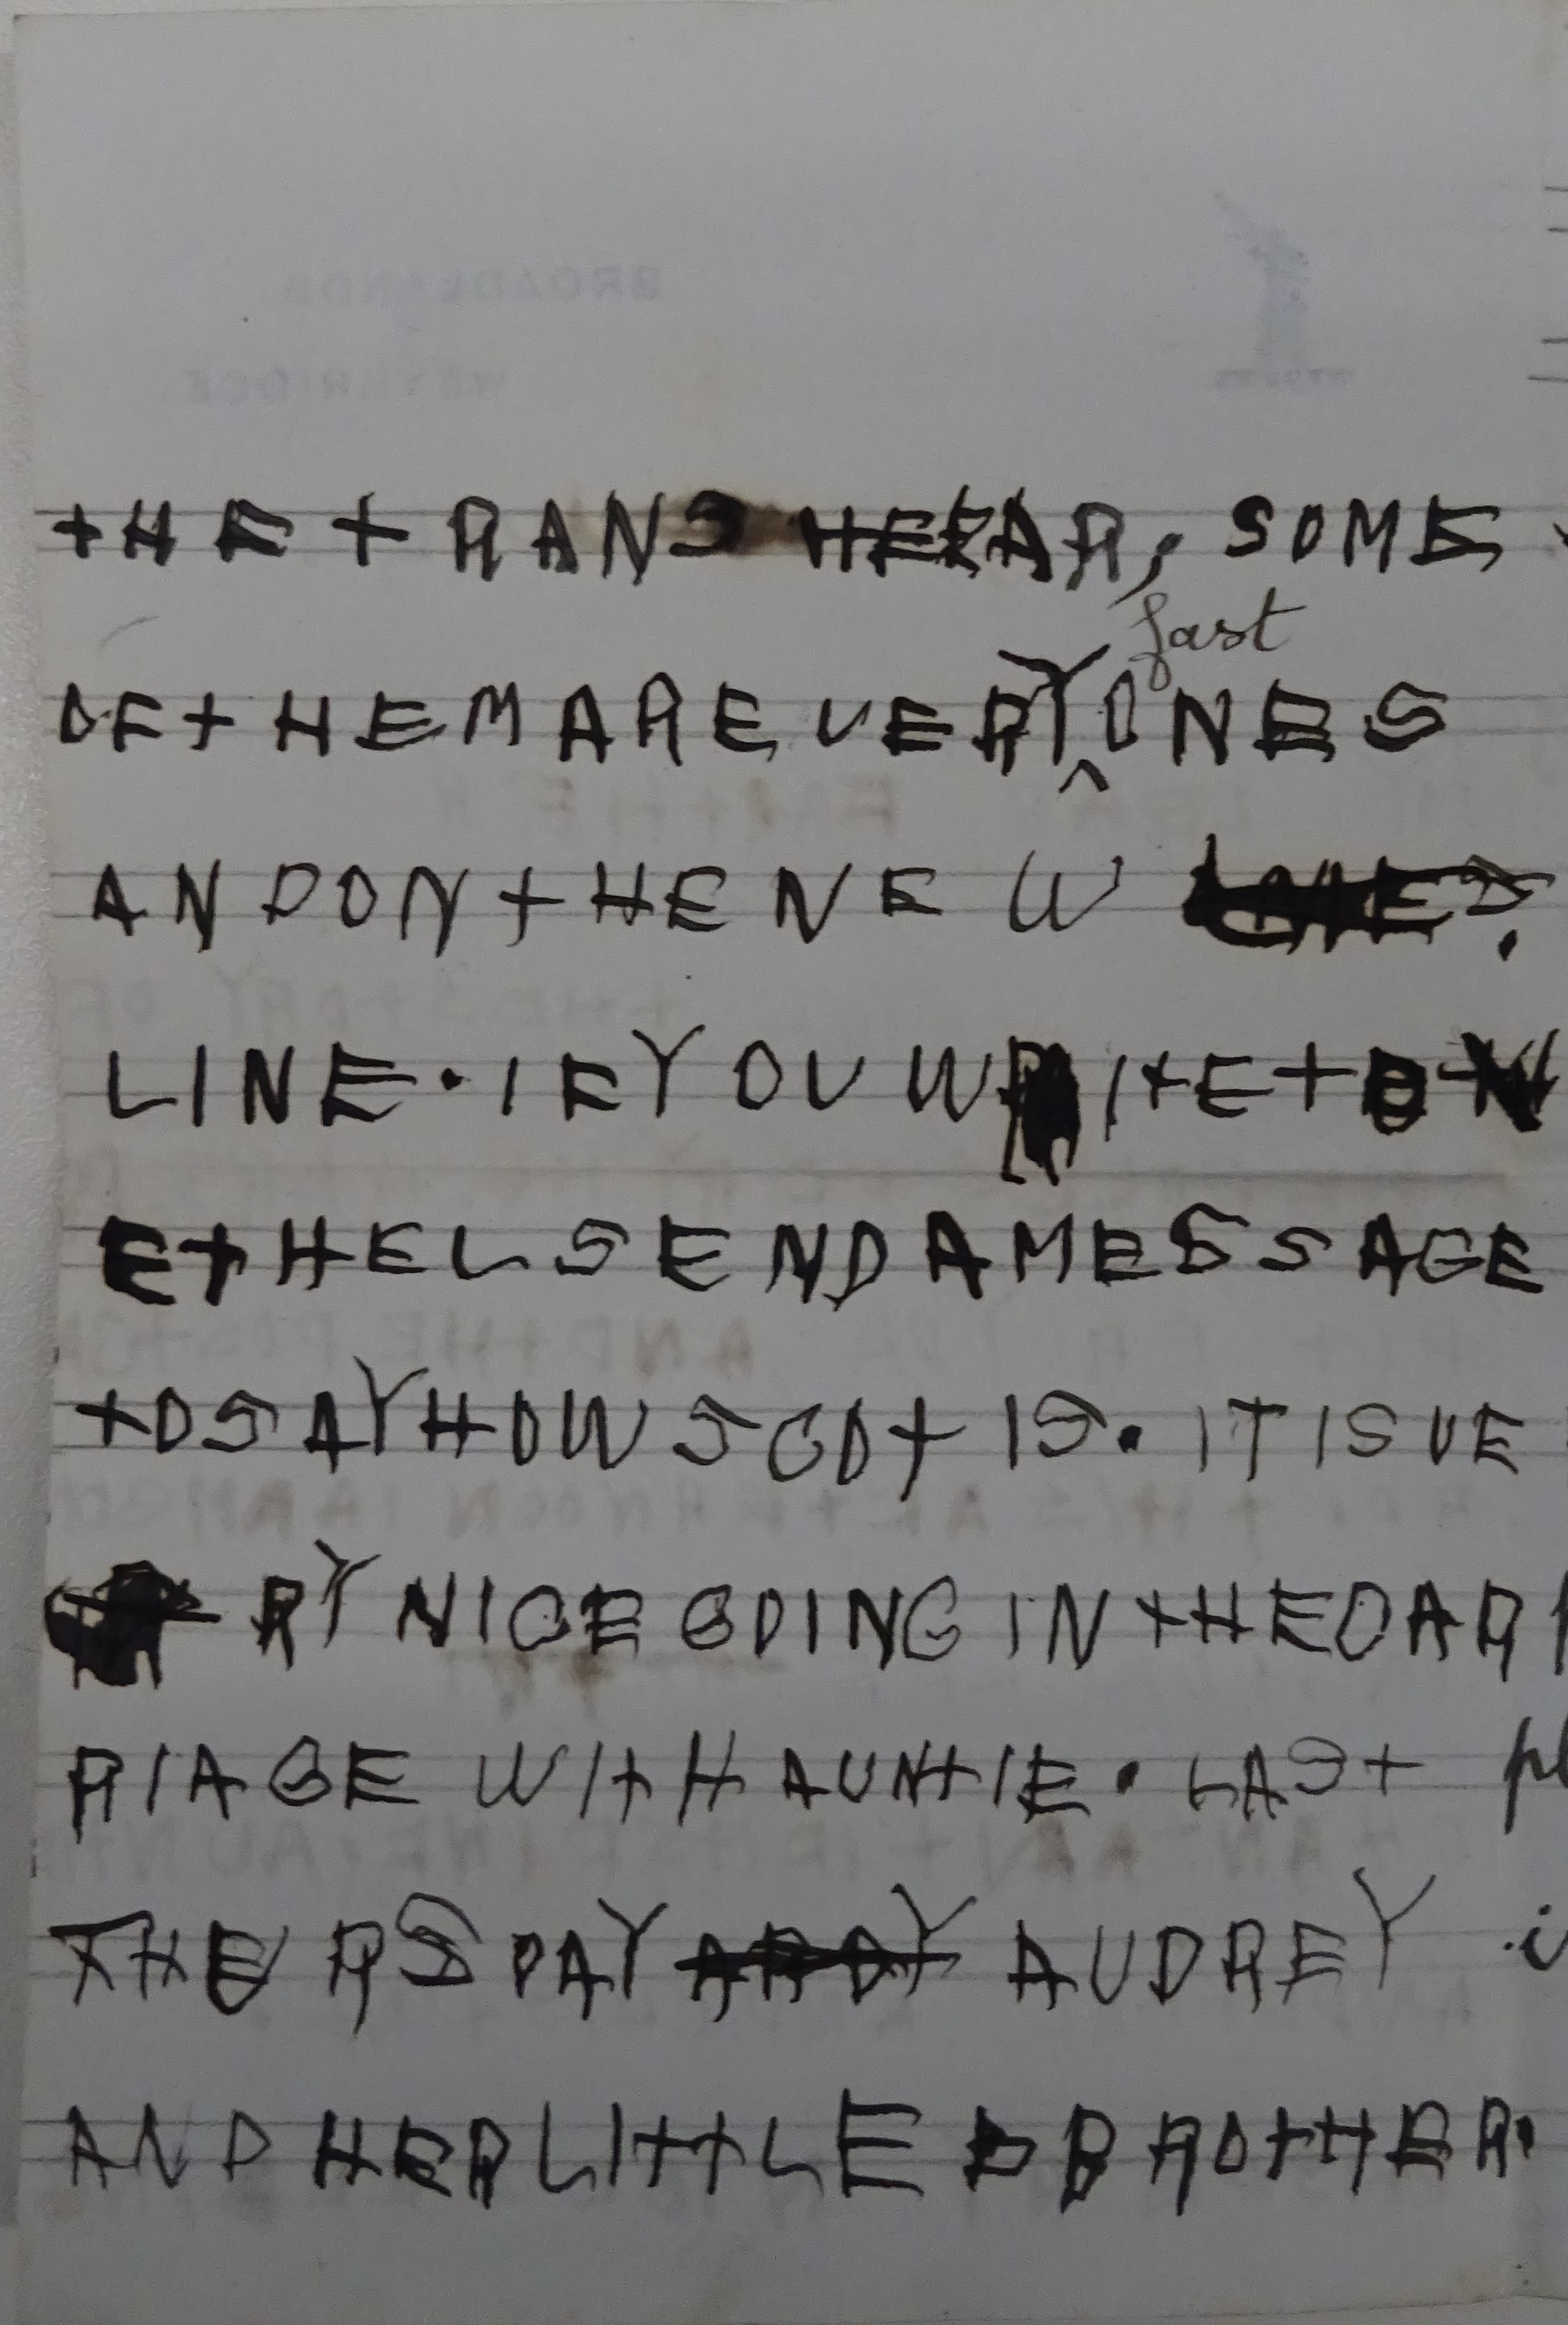 THE TRANS HEAR, SOME
fast
OF THEM ARE VERY ^ ONES
AND ON THE NEW
LINE. IF YOU WRITE TO
ETHEL SEND A MESSAGE
TO SAY HOW SCOT IS. IT IS VE
RY NICE GOING IN THE CAR
RIAGE WITH AUNTIE. LAST
THERSDAY AUDREY
AND HER LITTLE BROTHER.